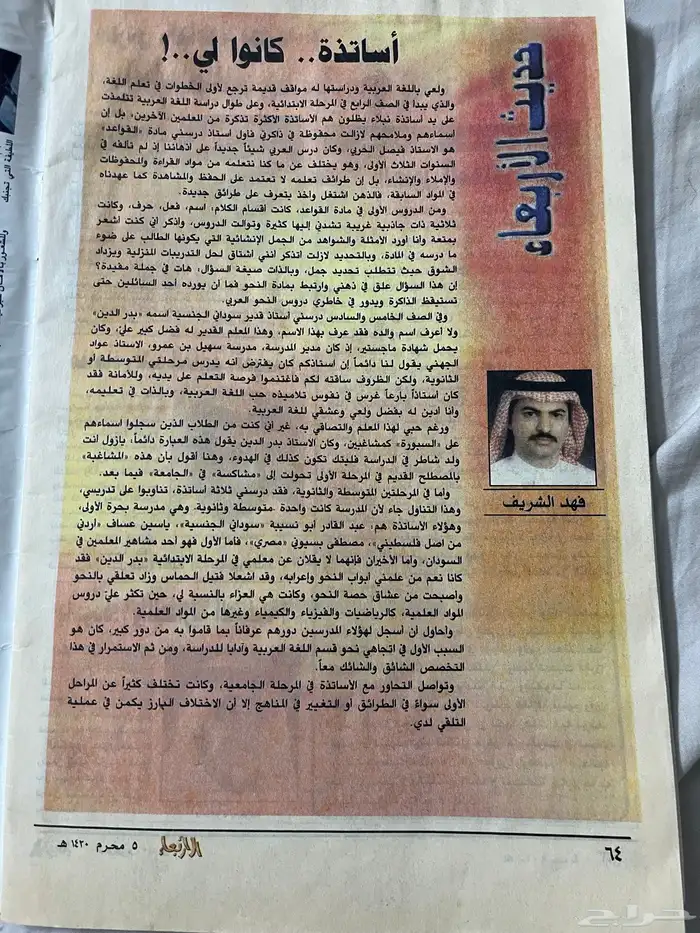 حديث الأربعاء
أساتذة.. كانوا لي..!
ولعي باللغة العربية ودراستها له مواقف قديمة ترجع لأولى الخطوات في تعلم اللغة،
والذي يبدأ في الصف الرابع في المرحلة الابتدائية، وعلى طوال دراسة اللغة العربية تتلمذت
على يد أساتذة نبلاء يظلون هم الأساتذة الأكثرة تذكرة من المعلمين الآخرين، بل إن
اسماءهم وملامحهم لازالت محفوظة في ذاكرتي فأول أستاذ درسني مادة «القواعد»
هو الاستاذ فيصل الحربي، وكان درس العربي شيئاً جديداً على أذهاننا إذ لم نألفه في
السنوات الثلاث الأولى، وهو يختلف عن ما كنا نتعلمه من مواد القراءة والمحفوظات
والإملاء والإنشاء، بل إن طرائف تعلمه لا تعتمد على الحفظ والمشاهدة كما عهدناه
في المواد السابقة، فالذهن اشتغل واخذ يتعرف على طرائق جديدة.
ومن الدروس الأولى في مادة القواعد، كانت أقسام الكلام، اسم، فعل، حرف، وكانت
ثلاثية ذات جاذبية غريبة تشدني إليها كثيرة وتوالت الدروس، واذكر اني كنت أشعر
بمتعة وانا اورد الأمثلة والشواهد من الجمل الإنشائية التي يكونها الطالب على ضوء
ما درسه في المادة، وبالتحديد لازلت اتذكر إنني أشتاق لحل التدريبات المنزلية ويزداد
الشوق حيث تتطلب تحديد جمل، وبالذات صيغة السؤال، هات في جملة مفيدة؟
إن هذا السؤال علق في ذهني وارتبط بمادة النحو فما أن يورده أحد السائلين حتى
تستيقظ الذاكرة ويدور في خاطري دروس النحو العربي.
وفي الصف الخامس والسادس درسني أستاذ قدير سوداني الجنسية أسمه «بدر الدين»
ولا أعرف اسم والده فقد عرف بهذا الاسم، وهذا المعلم القدير له فضل كبير علي، وكان
يحمل شهادة ماجستير، إذ كان مدير المدرسة، مدرسة سهيل بن عمرو، الاستاذ عواد
الجهني يقول لنا دائماً إن أستاذكم كان يفترض أنه يدرس مرحلتي المتوسطة أو
الثانوية، ولكن الظروف ساقته لكم فأغتنموا فرصة التعلم على يديه، وللأمانة فقد
كان أستاذاً بارعاً غرس في نفوس تلاميذه حب اللغة العربية، وبالذات في تعليمه،
وانا ادين له بفضل ولعي وعشقي للغة العربية.
ورغم حبي لهذا المعلم والتصاقي به، غير اني كنت من الطلاب الذين سجلوا اسماءهم
على «السبورة» كمشاغبين، وكان الاستاذ بدر الدين يقول هذه العبارة دائماً، يازول انت
ولد شاطر في الدراسة فليتك تكون كذلك في الهدوء، وهنا أقول بأن هذه «المشاغبة»
بالمصطلح القديم في المرحلة الأولى تحولت إلى «مشاكسة» في «الجامعة» فيما بعد.
وأما في المرحلتين المتوسطة والثانوية، فقد درسني ثلاثة أساتذة، تناوبوا على تدريسي،
وهذا التناول جاء لأن المدرسة كانت واحدة ـ متوسطة وثانوية ـ وهي مدرسة بحرة الأولى،
وهؤلاء الأساتذة هم، عبد القادر أبو نسيبة «سوداني الجنسية»، ياسين عساف «أردني
من اصل فلسطيني»، مصطفى بسيوني «مصري»، فأما الأول فهو أحد مشاهير المعلمين في
السودان، وأما الأخيران فإنهما لا يقلان عن معلمي في المرحلة الابتدائية «بدر الدين» فقد
كانا نعم من علمني أبواب النحو وإعرابه، وقد اشعلا فتيل الحماس وزاد تعلقي بالنحو
واصبحت من عشاق حصة النحو، وكانت هي العزاء بالنسبة لي، حين تكثر علي دروس
المواد العلمية، كالرياضيات والفيزياء والكيمياء وغيرها من المواد العلمية.
وأحاول ان أسجل لهؤلاء المدرسين دورهم عرفاناً بما قاموا به من دور كبير، كان هو
السبب الأول في اتجاهي نحو قسم اللغة العربية وآدابا للدراسة، ومن ثم الاستمرار في هذا
التخصص الشائق والشائك معاً.
وتواصل التحاور مع الأساتذة في المرحلة الجامعية، وكانت تختلف كثيراً عن المراحل
الأولى سواءً في الطرائق أو التغيير في المناهج إلا أن الاختلاف البارز يكمن في عملية
التلقي لدي.
فهد الشريف
٦٤
الأربعاء ٥ محرم ١٤٢٠ هـ
حراج